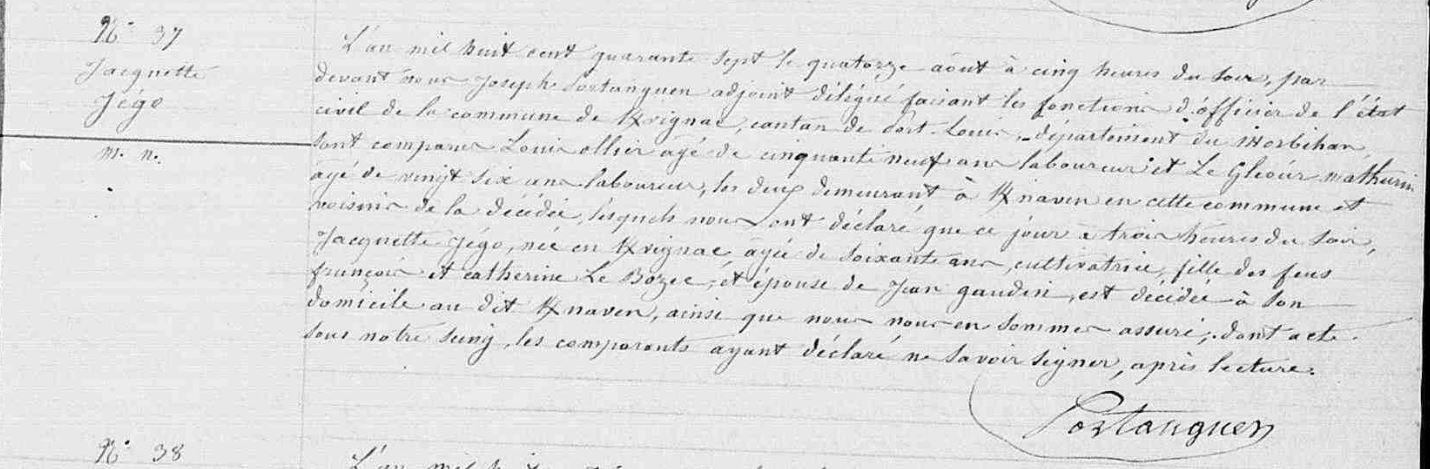 N° 37
Jacquette
Jégo
m. n.
L'an mil huit cent quarante sept le quatorze août à cinq heures du soir, par
devant nous Joseph Portanguen adjoint délégué faisant les fonctions d'officier de l'état
civil de la commune de Kvignac, canton de Port-Louis, département du Morbihan,
sont comparus Louis ollier agé de cinquante neuf ans laboureur et Le Gleour mathurin
agé de vingt six ans laboureur, les deux demeurant à Knaven en cette commune et
voisins de la décédée, lesquels nous ont déclaré que ce jour à trois heures du soir,
Jacquette Jégo, née en Kvignac, agée de soixante ans, cultivatrice, fille des feus
françois et catherine Le Bozec, et épouse de Jean gaudin, est décédée à son
domicile au dit Knaven, ainsi que nous nous en sommes assuré; dont acte
sous notre seing, les comparants ayant déclaré ne savoir signer, après lecture.
Portanguen
N° 38
L'an mil